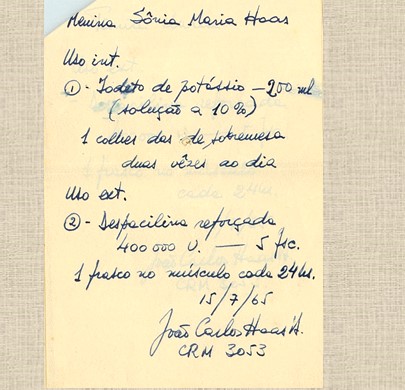 Menina Sônia Maria Haas
Uso int.
① - Iodeto de potássio — 200 ml
(solução a 10%)
1 colher das de sobremesa
duas vêzes ao dia
Uso ext.
② - Despacilina reforçada
400 000 U. — 5 fsc.
1 frasco no músculo cada 24 hs.
15/7/65
João Carlos Haas
CRM 3053